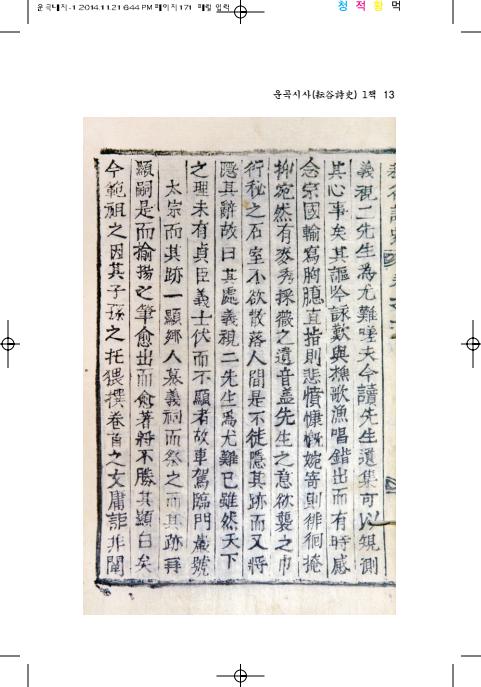 운곡시사-1 2014.11.21 6:44 PM 페이지171
청 적 황 먹
운곡시사(耘谷詩史) 1책 13
義視二先生爲尤難嗟夫今讀先生遺集可以覘測
其心事矣其謳吟詠歎與樵歌漁唱錯出而有時感
念宗國輸寫胸臆直指則悲憤慷慨婉寄則徘徊掩
抑宛然有麥秀採薇之遺音盖先生之意欲襲之巾
衍秘之石室不欲散落人間是不徒隱其跡而又將
隱其辭故曰其處義視二先生爲尤難已雖然天下
之理未有貞臣義士伏而不顯者故車駕臨門
太宗而其跡一顯鄉人慕義祠而祭之而其跡
顯嗣是而揄揚之筆愈出而愈著將不勝其顯白矣
今範祖之因其子孫之托猥撰卷首之文庸詎非闡